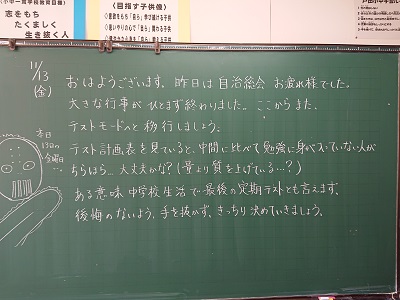 小中一貫学校教育目標
志をもち
たくましく
生き抜く人
〈目指す子供像〉
11/13
(金)
おはようございます。昨日は自治総会お疲れ様でした。
大きな行事がひとまず終わりました。ここからまた、
テストモードへと移行しましょう。
テスト計画表を見ていると、中間に比べて勉強に身が入っていない人が
ちらほら…大丈夫かな?(量より質を上げている…?)
ある意味中学校生活で最後の定期テストとも言えます。
後悔のないよう、手を抜かず、きっちり決めていきましょう。
本日
13日の
金曜日
…